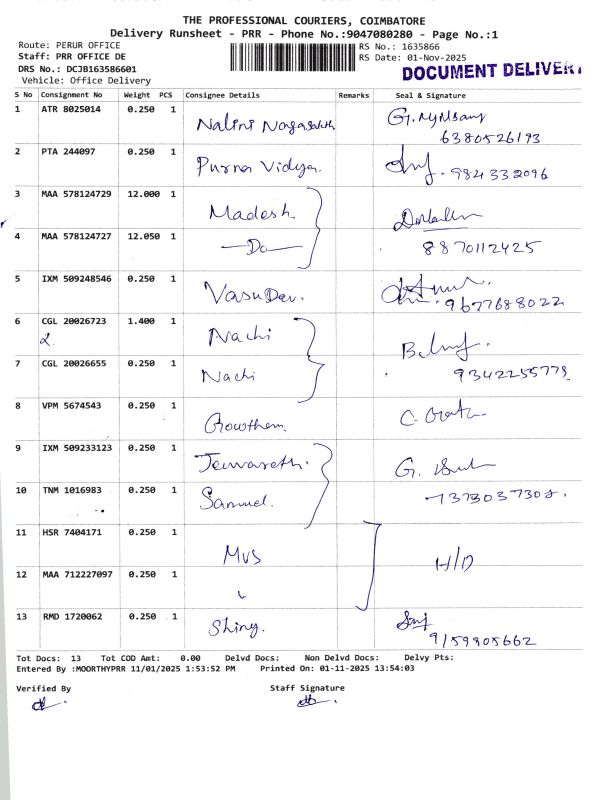 THE PROFESSIONAL COURIERS, COIMBATORE
Delivery Runsheet - PRR - Phone No.:9047080280 - Page No.:1
Route: PERUR OFFICE
RS No.: 1635866
Staff: PRR OFFICE DE
RS Date: 01-Nov-2025
DRS No.: DCJB163586601
DOCUMENT DELIVER
Vehicle: Office Delivery
S No Consignment No Weight PCS Consignee Details Remarks Seal & Signature
1 ATR 8025014 0.250 1 Nalini
6380526193
2 PTA 244097 0.250 1 Purna Vidya. 984332096
3 MAA 578124729 12.000 1 Madesh
4 MAA 578124727 12.050 1 —Do— 8870112425
5 IXM 509248546 0.250 1 VasuDev. 9677688022
6 CGL 20026723 1.400 1 Nachi
7 CGL 20026655 0.250 1 Nachi 9342255779
8 VPM 5674543 0.250 1 Gowtham
9 IXM 509233123 0.250 1 G.
10 TNM 1016983 0.250 1 Samuel. 7373037308.
11 HSR 7404171 0.250 1 MVS H/D
12 MAA 712227097 0.250 1 "
13 RMD 1720062 0.250 1 Shiny.
9159905662
Tot Docs: 13 Tot COD Amt: 0.00 Delvd Docs: Non Delvd Docs: Delvy Pts:
Entered By :MOORTHYPRR 11/01/2025 1:53:52 PM Printed On: 01-11-2025 13:54:03
Verified By Staff Signature